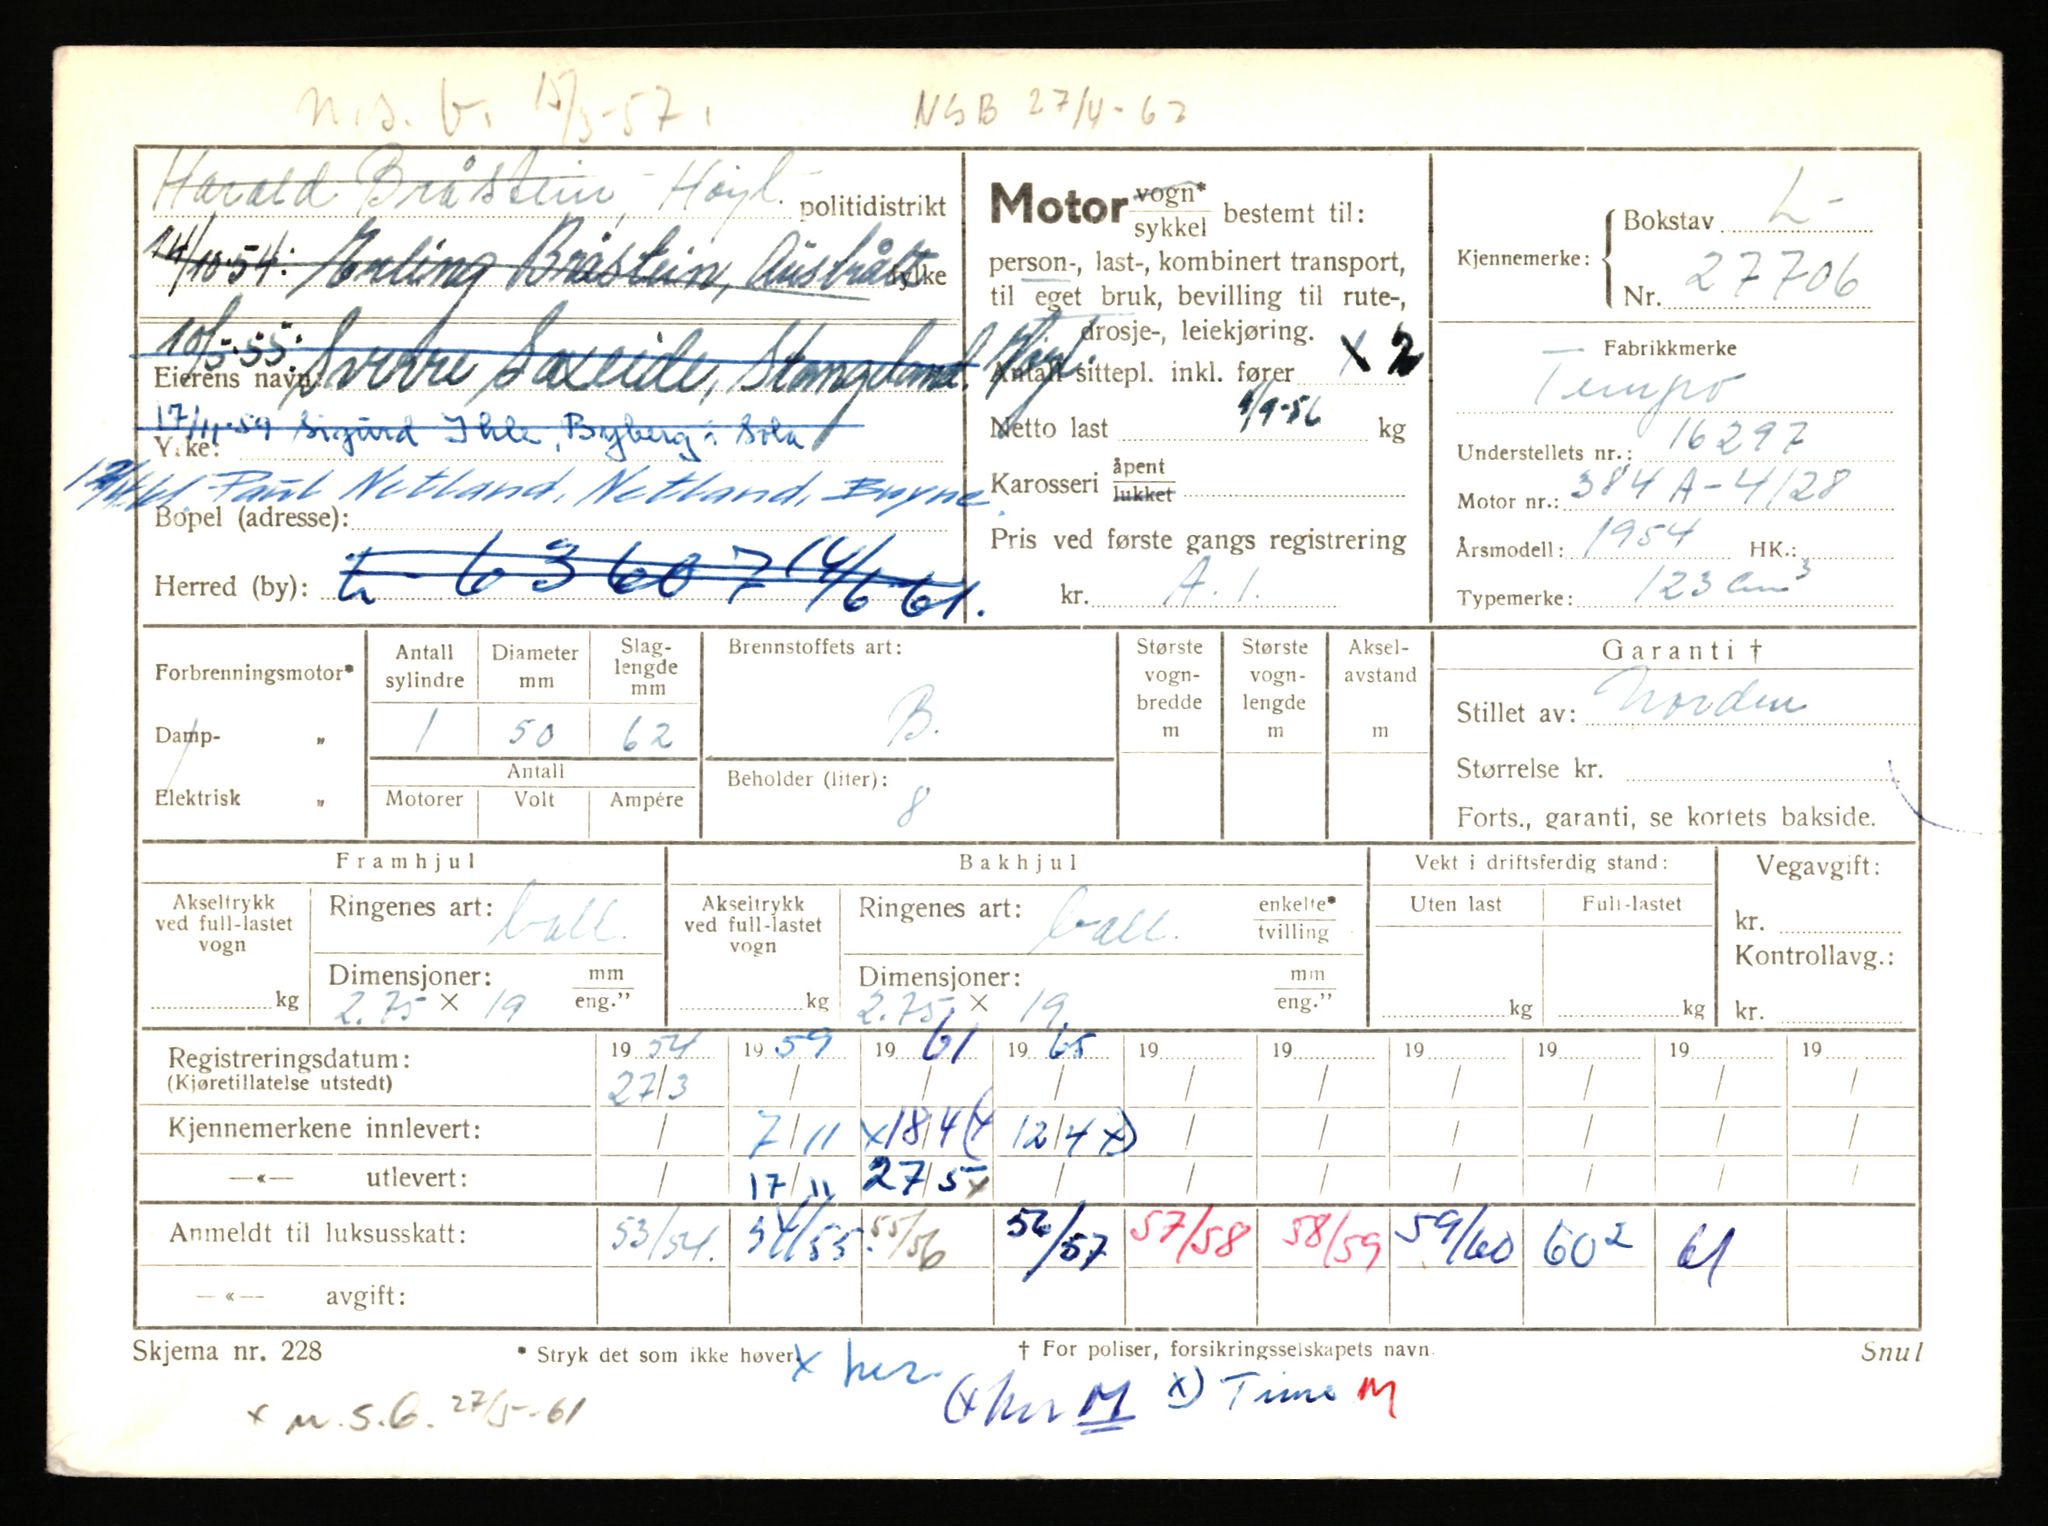 n.s.b. 15/3-57.
NSB 27/4-62
Harald Bråstein, Høyl. politidistrikt
14/10-54: Erling Bråstein, Austrått fylke
10/5-55: Sverre Saxeide, Stangeland. Høyl.
Eierens navn:
17/11-59 Sigurd Ihle, Byberg i Sola
Yrke:
Paul Netland, Netland, Bryne.
Bopel (adresse):
Herred (by): L-63607 14/6 61.
Motor vogn*
sykkel bestemt til:
person-, last-, kombinert transport,
til eget bruk, bevilling til rute-,
drosje-, leiekjøring.
Antall sittepl. inkl. fører x 2
Netto last 1/9-56 kg
Karosseri åpent
lukket
Pris ved første gangs registrering
kr. A. 1.
Kjennemerke: Bokstav L-
Nr. 27706
Fabrikkmerke
Tempo
Understellets nr.: 16297
Motor nr.: 384 A-4/28
Årsmodell: 1954 HK.:
Typemerke: 123 cm³
Forbrenningsmotor*
Damp- „
Elektrisk „
Antall sylindre Diameter mm Slaglengde mm
1 50 62
Antall
Motorer Volt Ampére
Brennstoffets art:
B.
Beholder (liter):
8
Største vognbredde m
Største vognlengde m
Akselavstand m
Garanti †
Stillet av: Norden
Størrelse kr.
Forts., garanti, se kortets bakside.
Framhjul
Akseltrykk ved full-lastet vogn
kg
Ringenes art: ball.
Dimensjoner: mm
eng."
2.75 x 19
Bakhjul
Akseltrykk ved full-lastet vogn
kg
Ringenes art: ball. enkelte*
tvilling
Dimensjoner: mm
eng."
2.75 x 19
Vekt i driftsferdig stand:
Uten last Full-lastet
kg kg
Vegavgift:
kr.
Kontrollavg.:
kr.
Registreringsdatum: 19 54 19 59 19 61 19 65 19 19 19 19 19 19
(Kjøretillatelse utstedt) 27/3 / / / / / / / / /
Kjennemerkene innlevert: / 7/11 x18/4(x 12/4 x) / / / / / /
—«— utlevert: / 17/11 27/5x / / / / / / /
Anmeldt til luksusskatt: 53/54. 54/55. 55/56 56/57 57/58 58/59 59/60 60² 61
—«— avgift:
Skjema nr. 228 * Stryk det som ikke høver. † For poliser, forsikringsselskapets navn. Snul
x her.
(x her M x) Time M
x n.s.b. 27/5-61